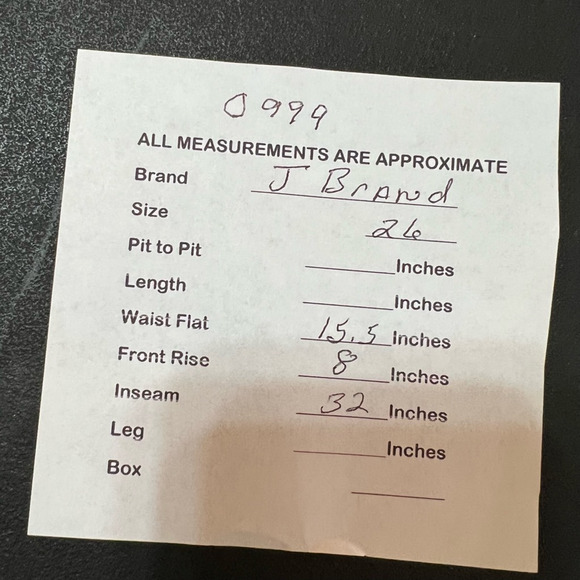 0999
ALL MEASUREMENTS ARE APPROXIMATE
Brand J Brand
Size 26
Pit to Pit Inches
Length Inches
Waist Flat 15.5 Inches
Front Rise 8 Inches
Inseam 32 Inches
Leg Inches
Box